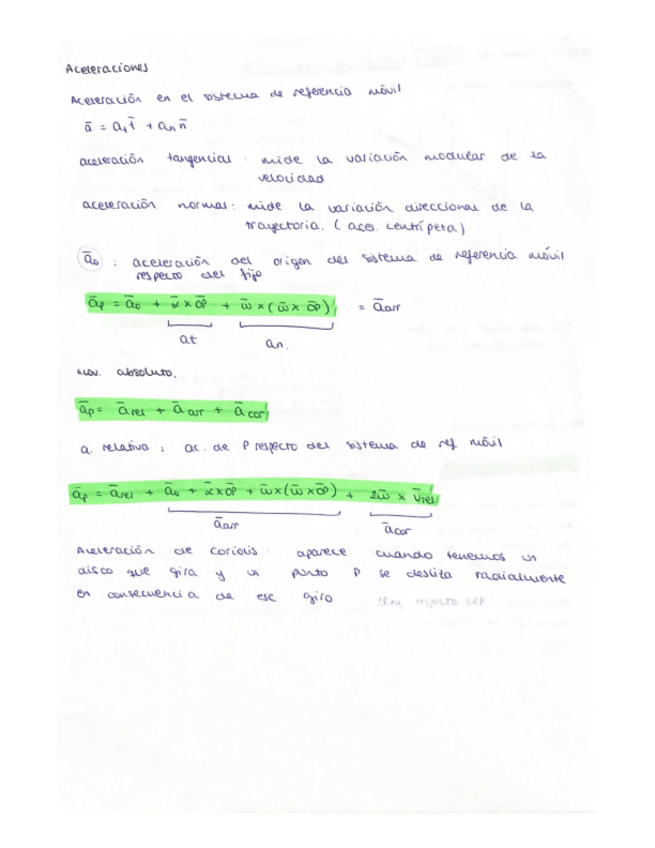 Aceleraciones
Aceleración en el sistema de referencia móvil
ā = aₜ t̄ + aₙ n̄
aceleración tangencial : mide la variación modular de la
velocidad
aceleración normal : mide la variación direccional de la
trayectoria. (acel. centrípeta)
ā₀ : aceleración del origen del sistema de referencia móvil
respecto del fijo
āₚ = ā₀ + ᾱ × OP̄ + ω̄ × (ω̄ × OP̄) = ā arr
at an.
Mov. absoluto.
āₚ = ā rel + ā arr + ā cor
a. relativa : ac. de P respecto del sistema de ref móvil
āₚ = ā rel + ā₀ + ᾱ × OP̄ + ω̄ × (ω̄ × OP̄) + 2ω̄ × v̄ rel
ā arr ā cor
Aceleración de Coriolis : aparece cuando tenemos un
disco que gira y un punto P se desliza radialmente
en consecuencia de ese giro